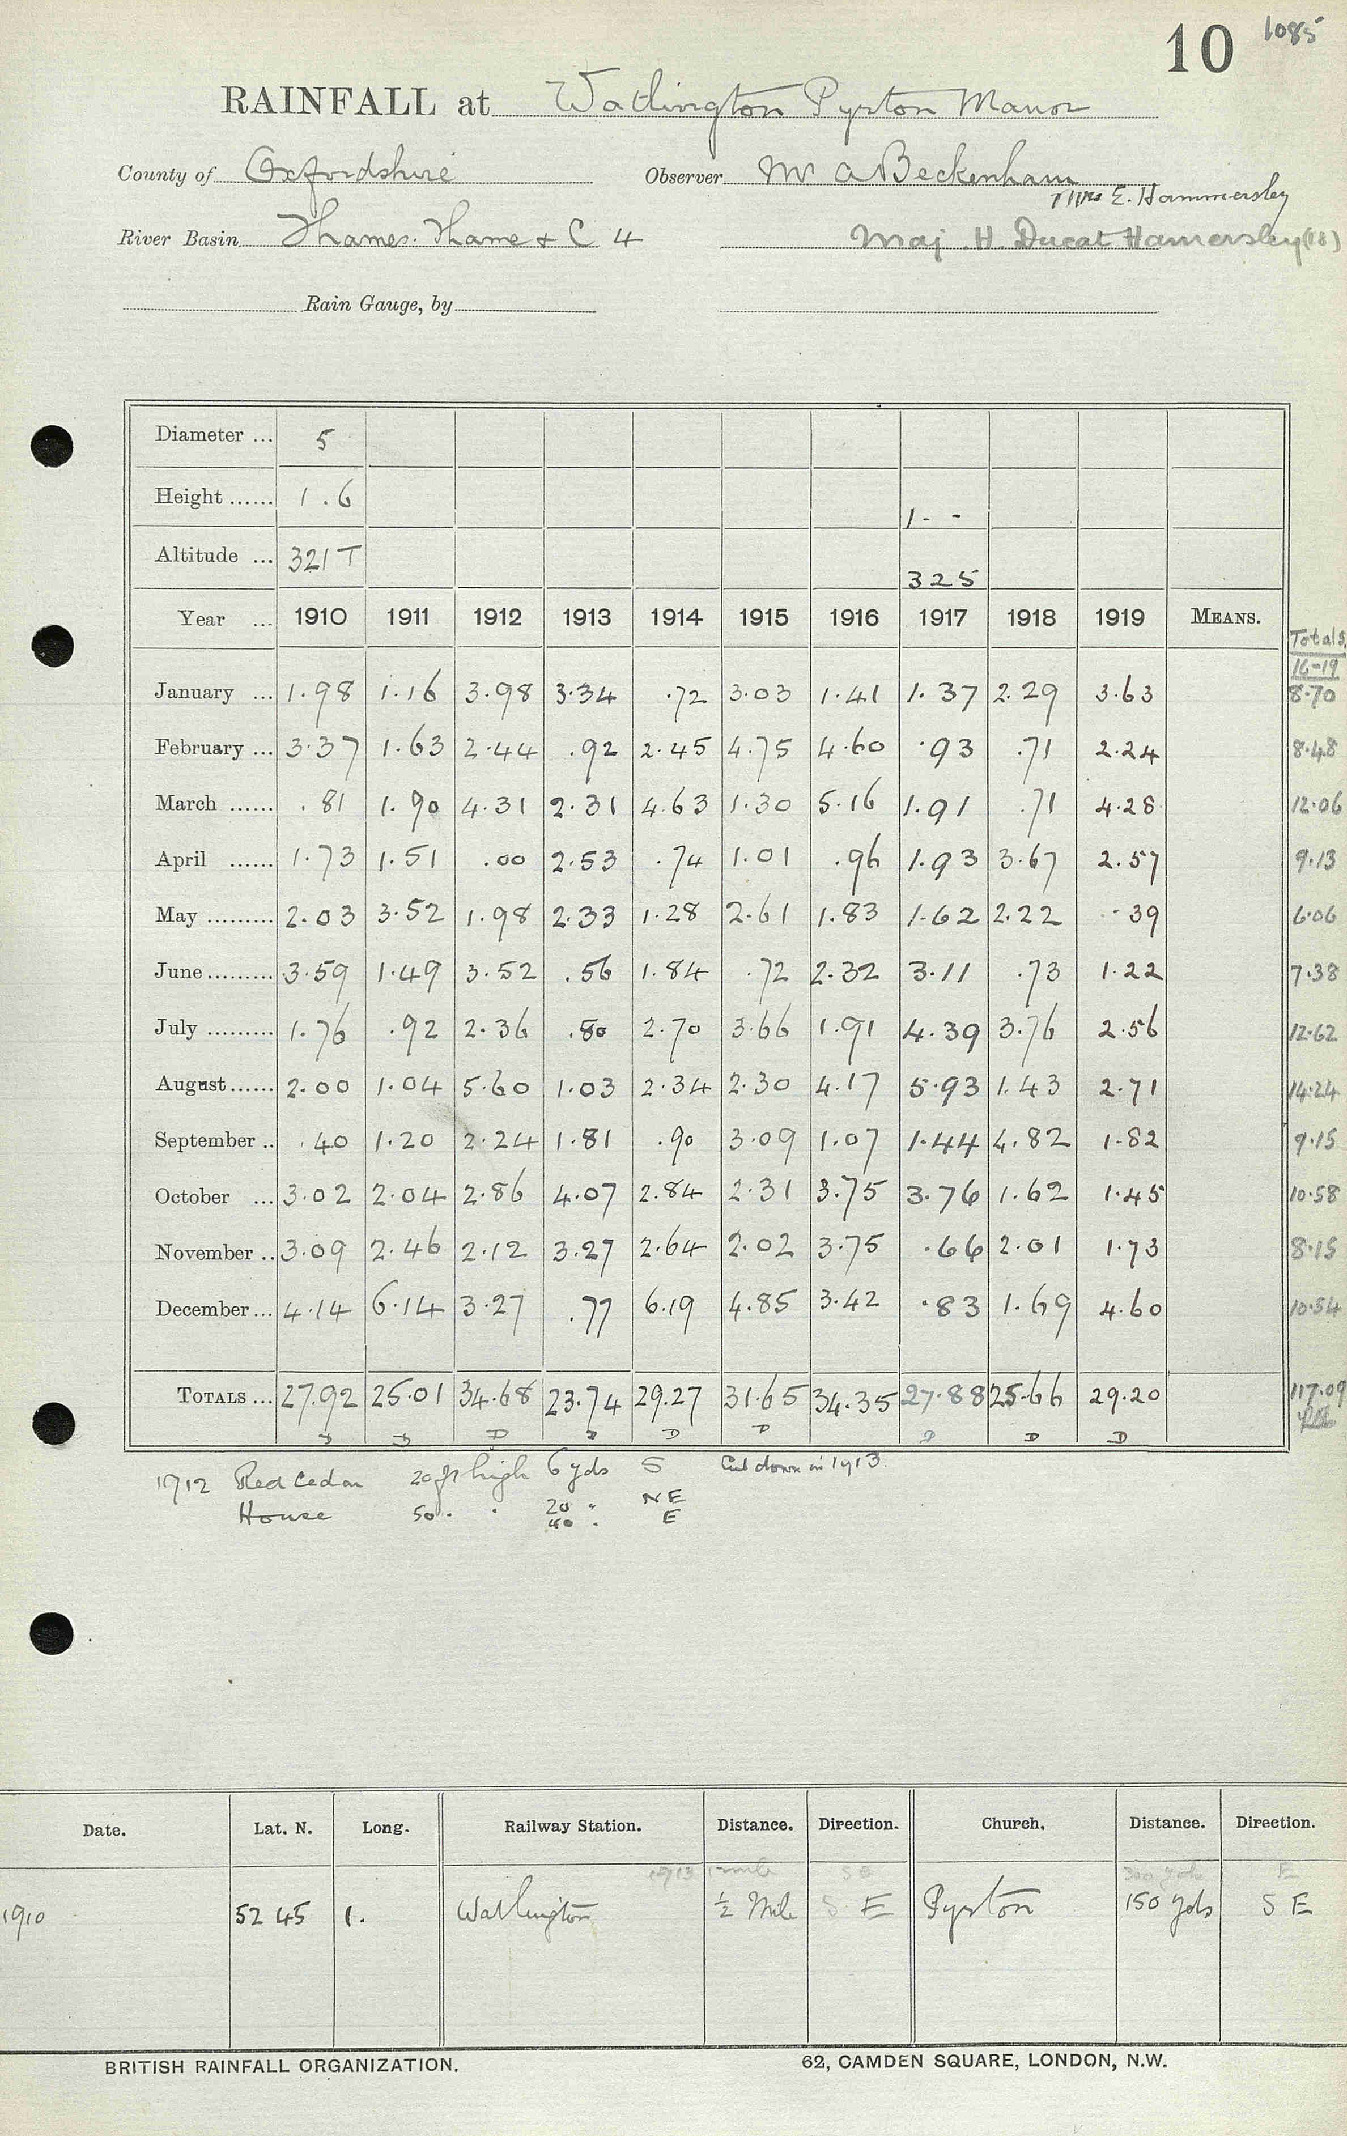 10 1085
RAINFALL at Watlington Pyrton Manor
County of Oxfordshire Observer Mr A Beckenham
Mrs E. Hammersley
River Basin Thames. Thame & C 4 Maj. H Ducat Hamersley (18)
Rain Gauge, by
Diameter ... 5
Height ...... 1.6 1 - -
Altitude ... 321 T 325
Year ... 1910 1911 1912 1913 1914 1915 1916 1917 1918 1919 MEANS. Totals
16-19
January ... 1.98 1.16 3.98 3.34 .72 3.03 1.41 1.37 2.29 3.63 8.70
February ... 3.37 1.63 2.44 .92 2.45 4.75 4.60 .93 .71 2.24 8.48
March ...... .81 1.90 4.31 2.31 4.63 1.30 5.16 1.91 .71 4.28 12.06
April ...... 1.73 1.51 .00 2.53 .74 1.01 .96 1.93 3.67 2.57 9.13
May ......... 2.03 3.52 1.98 2.33 1.28 2.61 1.83 1.62 2.22 .39 6.06
June ......... 3.59 1.49 3.52 .56 1.84 .72 2.32 3.11 .73 1.22 7.38
July ......... 1.76 .92 2.36 .80 2.70 3.66 1.91 4.39 3.76 2.56 12.62
August ...... 2.00 1.04 5.60 1.03 2.34 2.30 4.17 5.93 1.43 2.71 14.24
September .. .40 1.20 2.24 1.81 .90 3.09 1.07 1.44 4.82 1.82 9.15
October ... 3.02 2.04 2.86 4.07 2.84 2.31 3.75 3.76 1.62 1.45 10.58
November .. 3.09 2.46 2.12 3.27 2.64 2.02 3.75 .66 2.01 1.73 8.15
December ... 4.14 6.14 3.27 .77 6.19 4.85 3.42 .83 1.69 4.60 10.54
TOTALS ... 27.92 25.01 34.68 23.74 29.27 31.65 34.35 27.88 25.66 29.20 117.09
D D D D D D D D D
1912 Red Cedar 20 ft high 6 yds S Cut down in 1913
House 50 . " 20 " NE
40 " E
Date. Lat. N. Long. Railway Station. Distance. Direction. Church. Distance. Direction.
1913 1 mile S E 300 yds E
1910 52 45 1. Watlington ½ Mile S E Pyrton 150 yds S E
BRITISH RAINFALL ORGANIZATION. 62, CAMDEN SQUARE, LONDON, N.W.